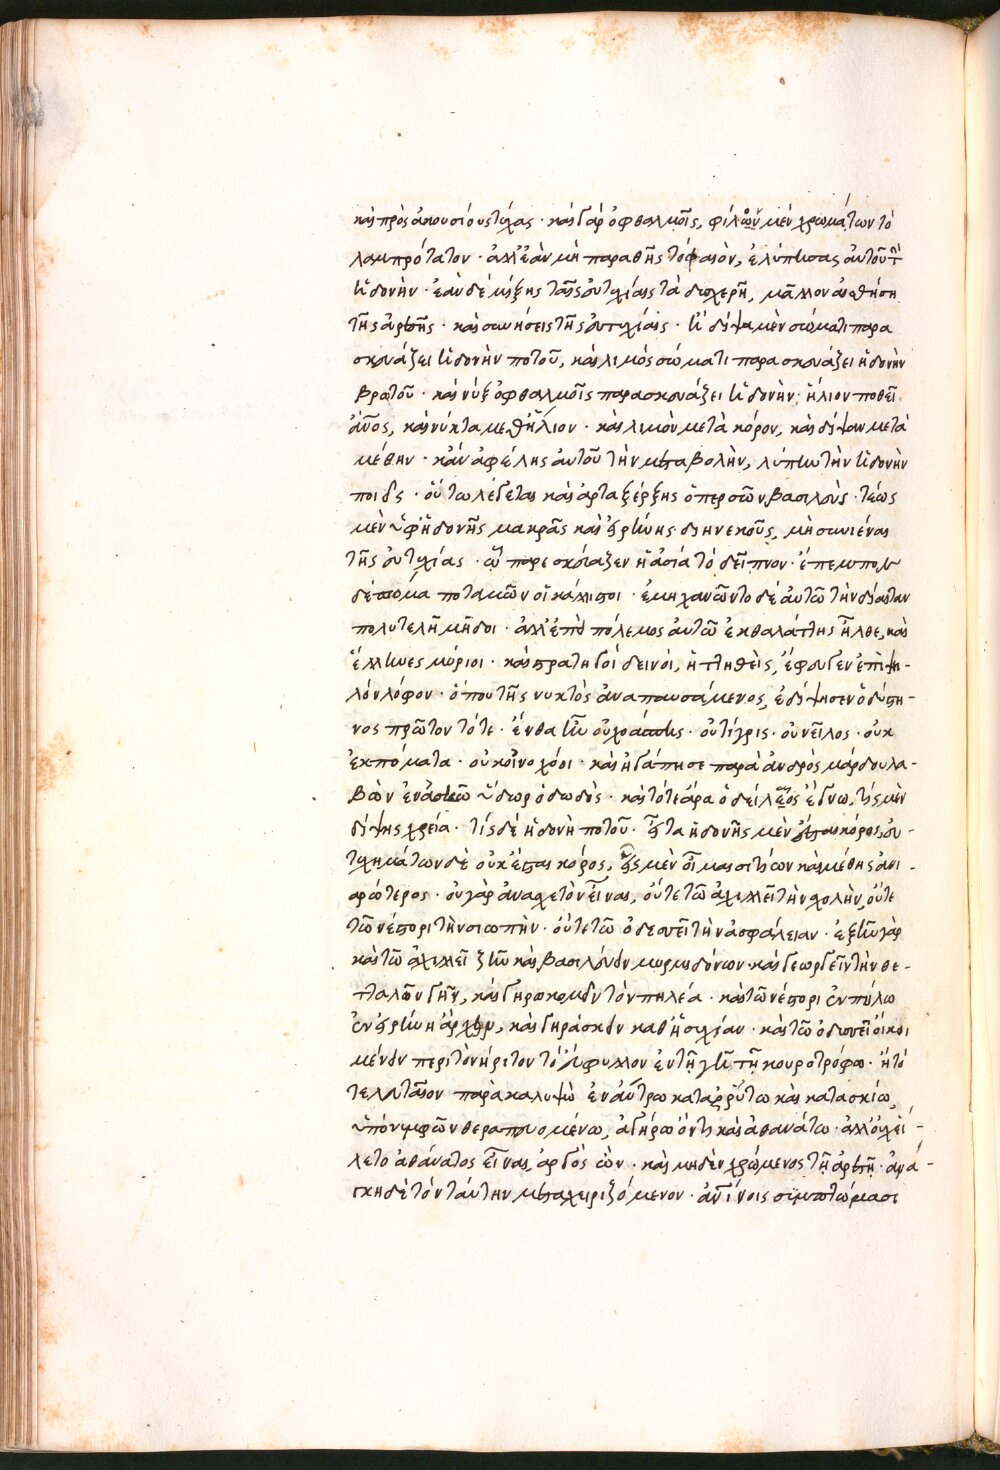 καὶ πρὸς ἀκουσίους τύχας · καὶ γὰρ ὀφθαλμοῖς, φίλον μὲν χρωμάτων τὸ
λαμπρότατον · ἀλλ' ἐὰν μὴ παραθῇς τὸ φαιὸν, ἐλύπησας αὐτοῦ τὴν
ἡδονὴν · ἐὰν δὲ μίξῃς ταῖς εὐτυχίαις τὰ δυσχερῆ, μᾶλλον αἰσθήσῃ
τῆς ἀρετῆς · καὶ συνήσεις τῆς εὐτυχίας · ἡ δίψα μὲν σώματι παρα
σκευάζει ἡδονὴν ποτοῦ, καὶ λιμὸς σώματι παρασκευάζει ἡδονὴν
βρωτοῦ · καὶ νὺξ ὀφθαλμοῖς παρασκευάζει ἡδονὴν · ἥλιον ποθεῖ
ἄνος, καὶ νύκτα μεθ' ἥλιον · καὶ λιμὸν μετὰ κόρον, καὶ δίψαν μετὰ
μέθην · κἂν ἀφέλῃς αὐτοῦ τὴν μεταβολὴν, λύπην τὴν ἡδονὴν
ποιεῖς · οὕτω λέγεται καὶ ἀρταξέρξης ὁ περσῶν βασιλεὺς · τέως
μὲν ὑφ' ἡδονῆς μακρᾶς καὶ εἰρήνης διηνεκοῦς, μὴ συνιέναι
τῆς εὐτυχίας · ᾧ παρεσκεύαζεν ἡ ἀσία τὸ δεῖπνον · ἔπεμπον
δὲ πόμα ποταμῶν οἱ κάλλιστοι · ἐμηχανῶντο δὲ αὐτῷ τὴν δίαιταν
πολυτελῆ μῆδοι · ἀλλ' ἐπεὶ πόλεμος αὐτῷ ἐκ θαλάττης ἦλθε, καὶ
ἕλληνες μύριοι · καὶ στρατηγοὶ δεινοὶ, ἡττηθεὶς, ἔφευγεν ἐπὶ ψι-
λὸν λόφον · ὅπου τῆς νυκτὸς ἀναπαυσάμενος, ἐδίψησεν ὁ δύστη-
νος πρῶτον τότε · ἔνθα ἦν οὐ χοάσπης · οὐ τίγρις · οὐ νεῖλος · οὐκ
ἐκπώματα · οὐκ οἰνοχόοι · καὶ ἠγάπησε παρὰ ἀνδρὸς μάρδου λα-
βὼν ἐν ἀσκῷ ὕδωρ ὀδωδὸς · καὶ τότε ἄρα ὁ δείλαιος ἔγνω, τίς μὲν
δίψης χρεία · τίς δὲ ἡδονὴ ποτοῦ · εἶτα ἡδονῆς μὲν ἔσται κόρος, εὐ-
τυχημάτων δὲ οὐκ ἔσται κόρος, εἷς μὲν οἶμαι σιτίων καὶ μέθης ἀνι-
αρώτερος · οὐ γὰρ ἀνασχετὸν εἶναι, οὔτε τῷ ἀχιλλεῖ τὴν σχολὴν, οὔτε
τῷ νέστορι τὴν σιωπὴν · οὔτε τῷ ὀδυσσεῖ τὴν ἀσφάλειαν · ἐξῆν γὰρ
καὶ τῷ ἀχιλλεῖ ζῆν καὶ βασιλεύειν μυρμιδόνων · καὶ γεωργεῖν τὴν θε-
τταλῶν γῆν, καὶ γηροκομεῖν τὸν πηλέα · καὶ τῷ νέστορι ἐν πύλῳ
ἐν εἰρήνῃ ἄρχειν, καὶ γηράσκειν καθ' ἡσυχίαν · καὶ τῷ ὀδυσσεῖ οἴκοι
μένειν περὶ τὸν νήριτον τὸ εἰνοσίφυλλον ἐν τῇ γῇ τῇ κουροτρόφῳ · ἢ τὸ
τελευταῖον παρὰ καλυψοῖ ἐν ἄντρῳ καταρρύτῳ καὶ κατασκίῳ,
ὑπὸ νυμφῶν θεραπευομένῳ, ἀγήρῳ ὄντι καὶ ἀθανάτῳ · ἀλλ' οὐχ εἵ-
λετο ἀθάνατος εἶναι, ἀργὸς ὢν · καὶ μηδὲν χρώμενος τῇ ἀρετῇ · ἀνά-
γκη δὲ τὸν ταύτην μεταχειριζόμενον · ἀντινόοις συμπτώμασι